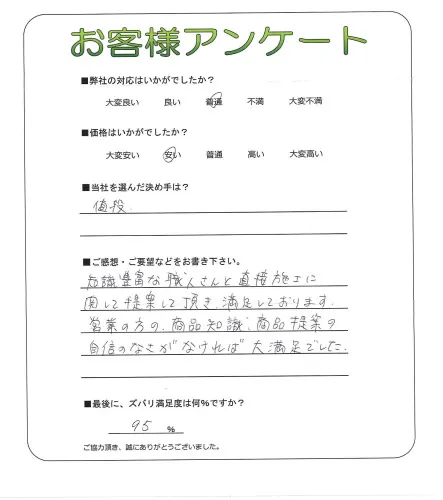 お客様アンケート
■弊社の対応はいかがでしたか?
大変良い 良い 普通 不満 大変不満
■価格はいかがでしたか?
大変安い 安い 普通 高い 大変高い
■当社を選んだ決め手は?
値段.
■ご感想・ご要望などをお書き下さい。
知識豊富な職人さんと直接施工に
関して提案して頂き、満足しております。
営業の方の、商品知識、商品提案の
自信のなさがなければ大満足でした.
■最後に、ズバリ満足度は何%ですか?
95 %
ご協力頂き、誠にありがとうございました。